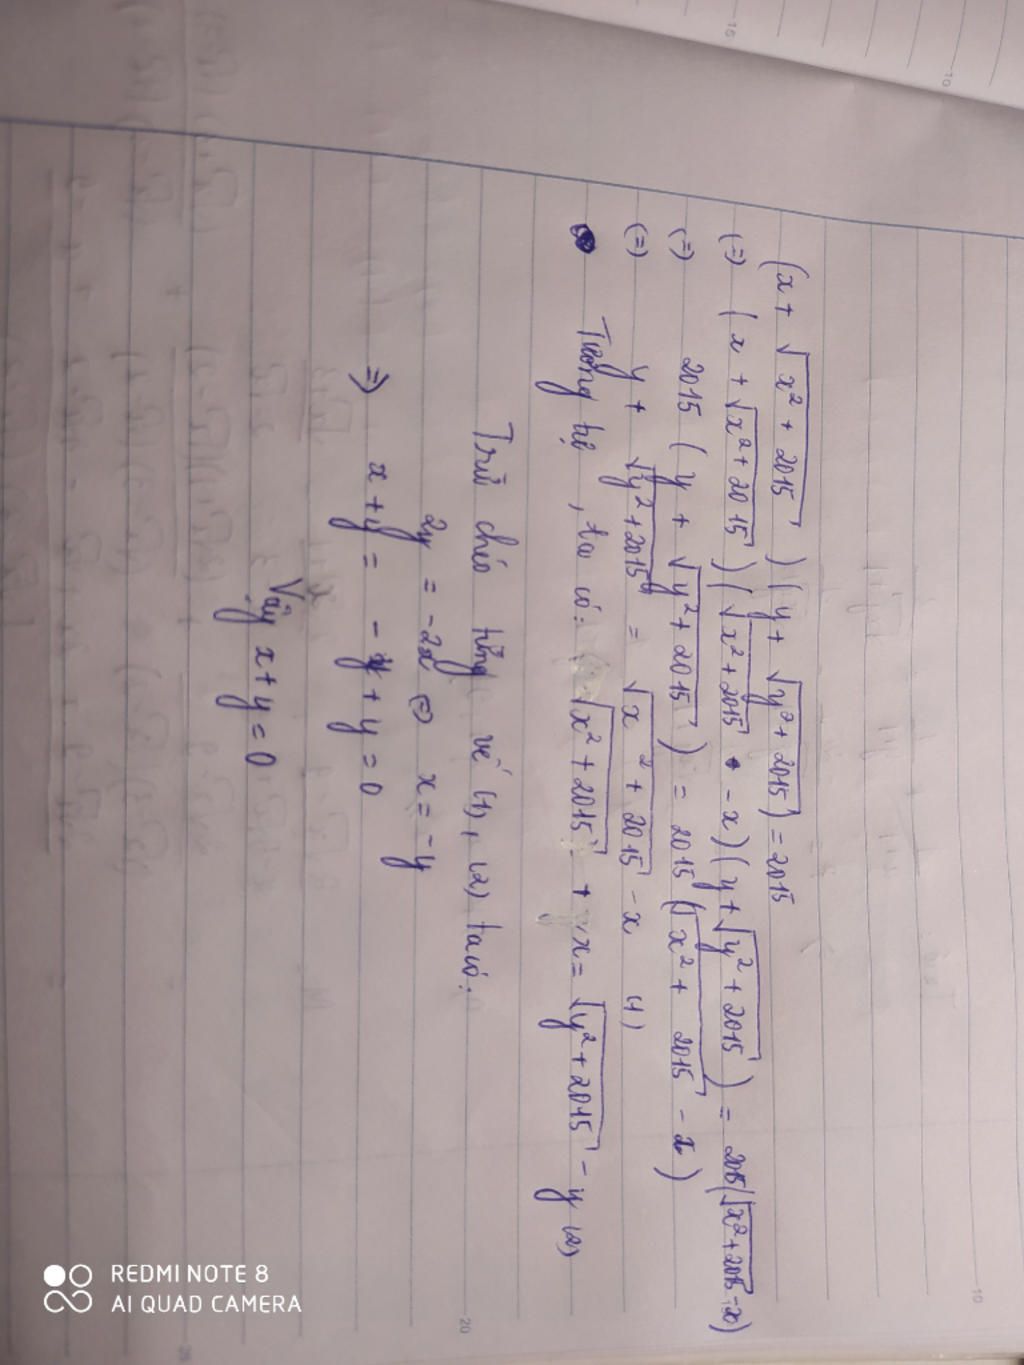 (x + √x² + 2015) (y + √y² + 2015) = 2015
(=) (x + √x² + 2015) (√x² + 2015 - x) (y + √y² + 2015) = 2015 (√x² + 2015 - x)
(=) 2015 (y + √y² + 2015) = 2015 (√x² + 2015 - x)
(=) y + √y² + 2015 = √x² + 2015 - x (1)
Tương tự, ta có: √x² + 2015 + x = √y² + 2015 - y (2)
Trừ chéo từng vế (1), (2) ta có:
2y = -2x (=) x = -y
=> x + y = -y + y = 0
Vậy x + y = 0
REDMI NOTE 8
AI QUAD CAMERA
15
10
10
20